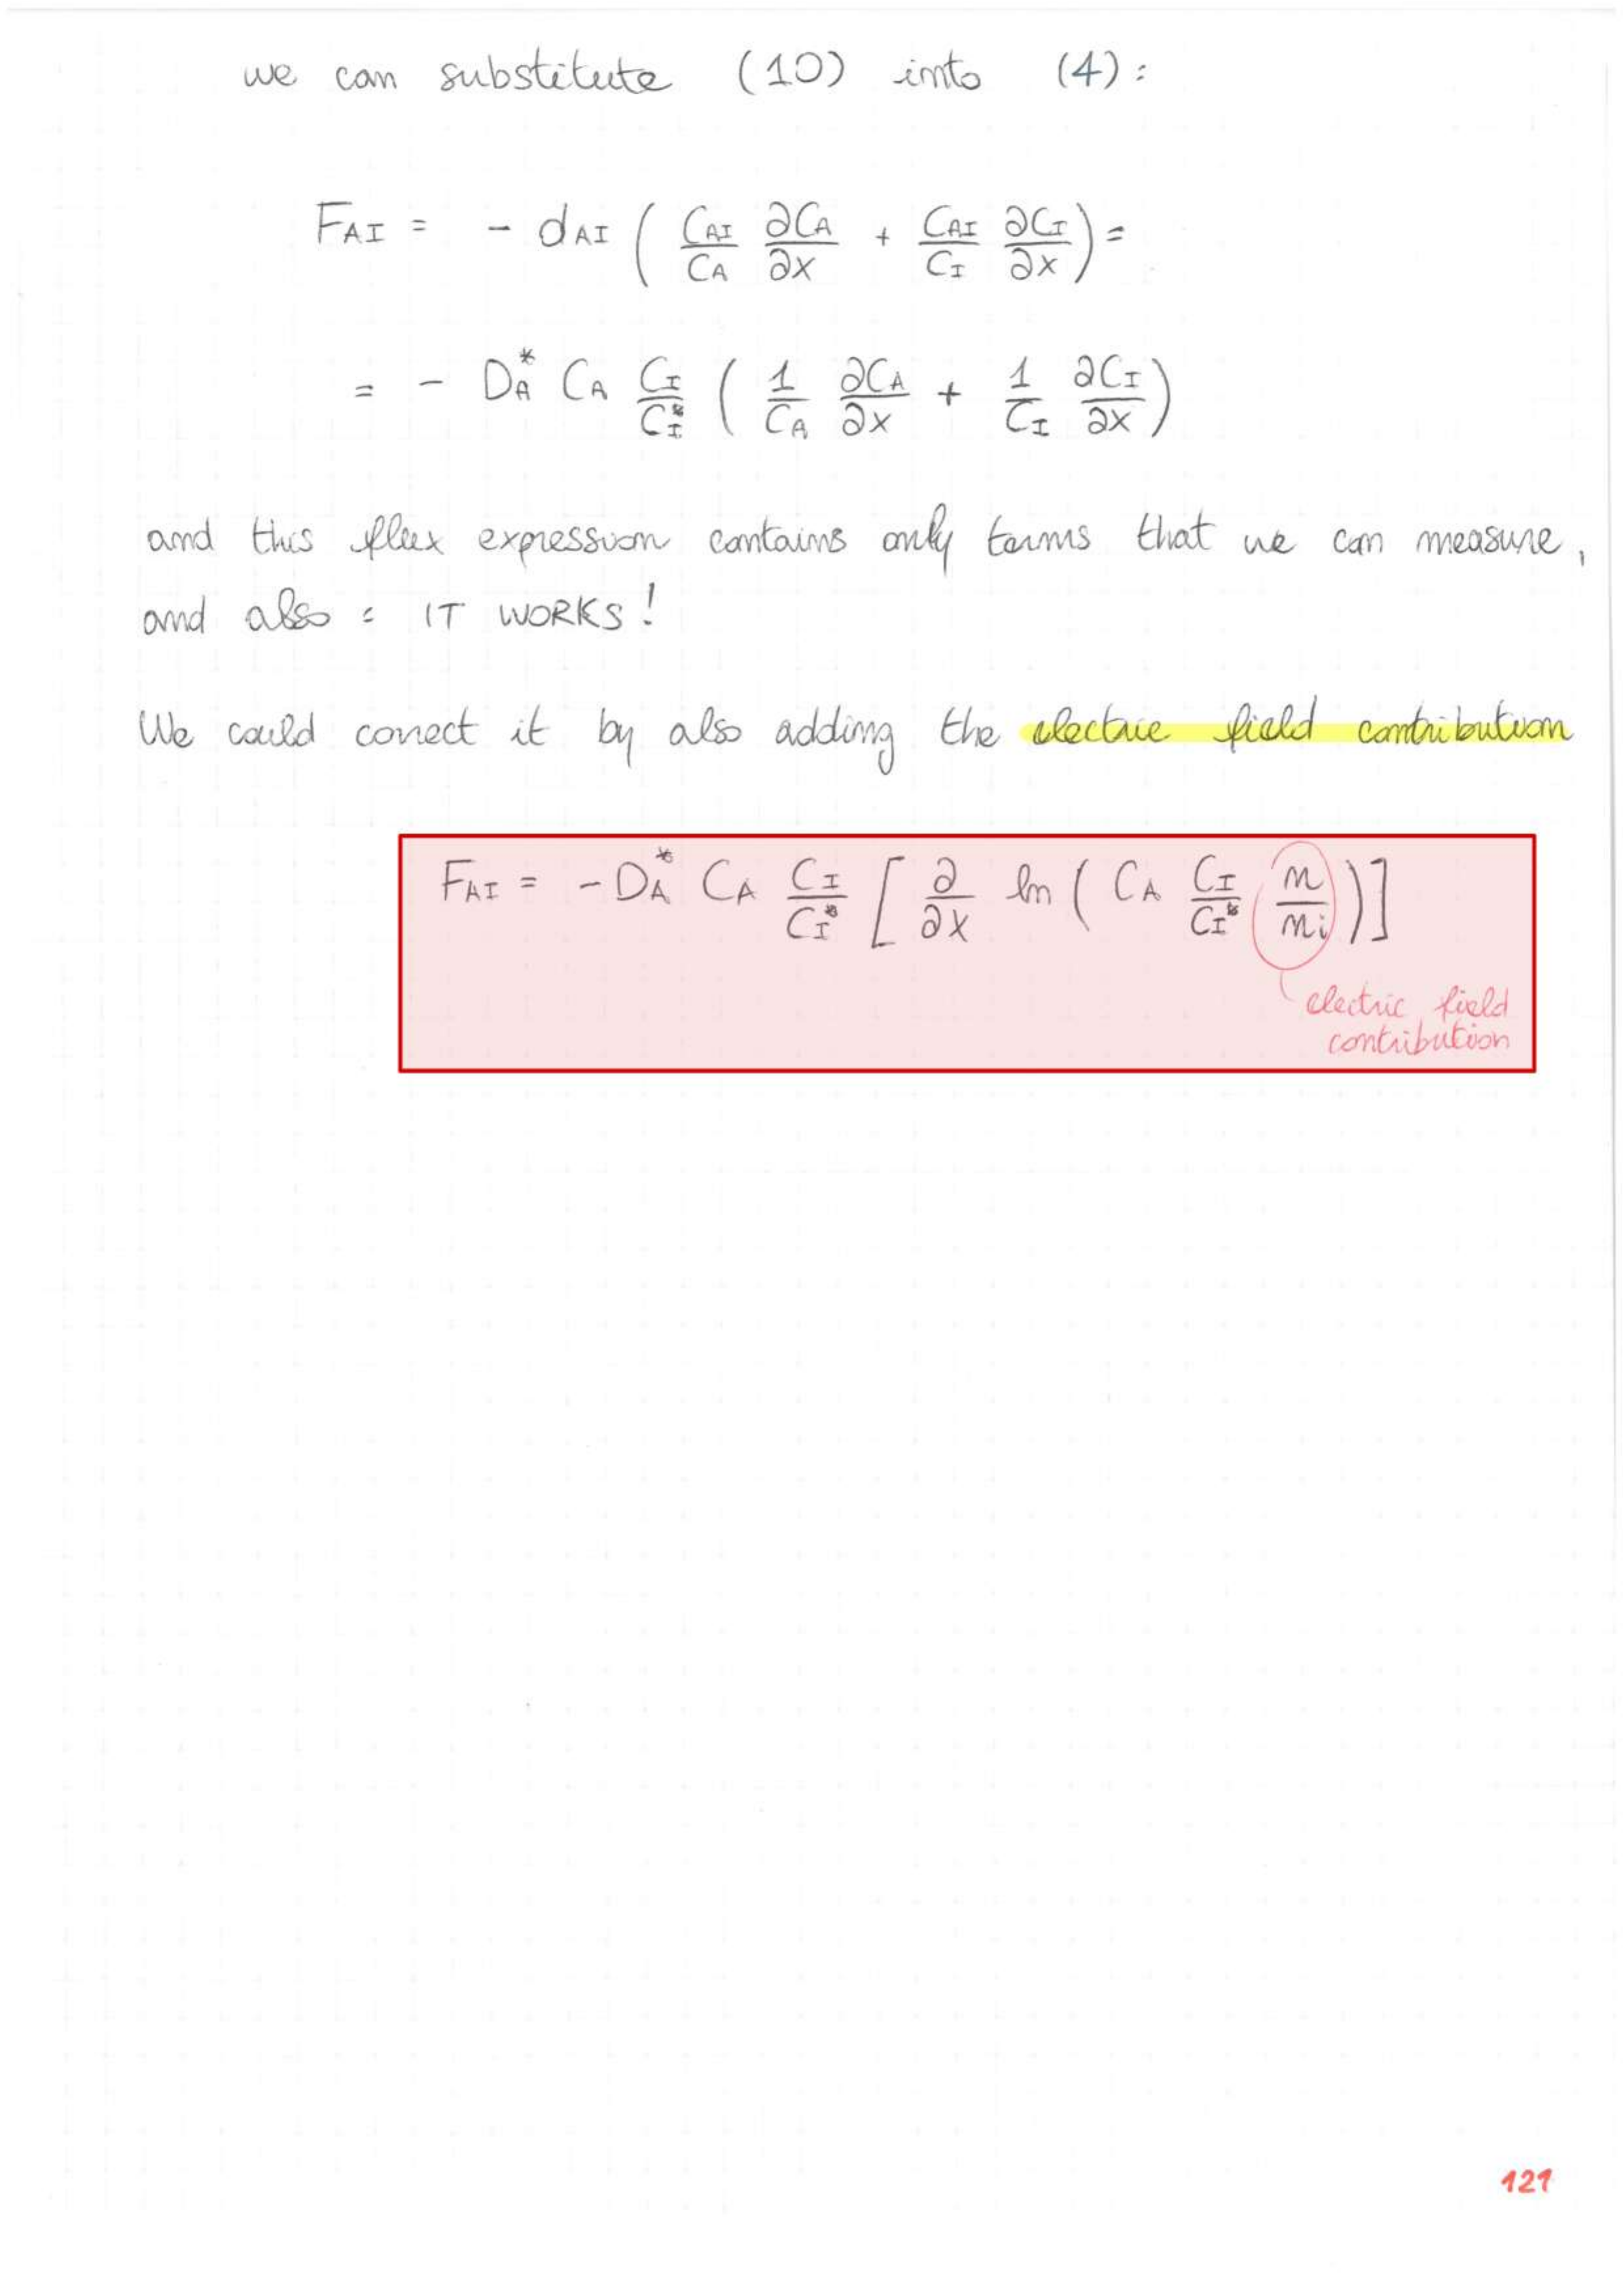 we can substitute (10) into (4) :
F_AI = - d_AI ( C_AI/C_A ∂C_A/∂x + C_AI/C_I ∂C_I/∂x ) =
= - D_A^* C_A C_I/C_I^* ( 1/C_A ∂C_A/∂x + 1/C_I ∂C_I/∂x )
and this flux expression contains only terms that we can measure,
and also : IT WORKS!
We could correct it by also adding the electric field contribution
F_AI = - D_A^* C_A C_I/C_I^* [ ∂/∂x ln ( C_A C_I/C_I^* n/n_i ) ]
electric field
contribution
121